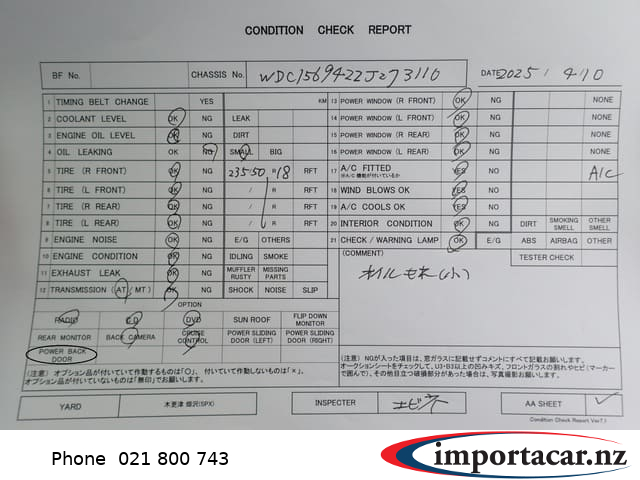 CONDITION CHECK REPORT
BF No. CHASSIS No. WDC1569422J273110 DATE 2025 / 4/10
1 TIMING BELT CHANGE YES KM
2 COOLANT LEVEL OK NG LEAK
3 ENGINE OIL LEVEL OK NG DIRT
4 OIL LEAKING OK NG SMALL BIG
5 TIRE (R FRONT) OK NG 235/50 R 18 RFT
6 TIRE (L FRONT) OK NG / R RFT
7 TIRE (R REAR) OK NG / R RFT
8 TIRE (L REAR) OK NG / R RFT
9 ENGINE NOISE OK NG E/G OTHERS
10 ENGINE CONDITION OK NG IDLING SMOKE
11 EXHAUST LEAK OK NG MUFFLER RUSTY MISSING PARTS
12 TRANSMISSION (AT / MT) OK NG SHOCK NOISE SLIP
OPTION
RADIO CD DVD SUN ROOF FLIP DOWN MONITOR
REAR MONITOR BACK CAMERA CRUISE CONTROL POWER SLIDING DOOR (LEFT) POWER SLIDING DOOR (RIGHT)
POWER BACK DOOR
(注意) オプション品が付いていて作動するものは「○」、付いていて作動しないものは「×」、
オプション品が付いていないものは「無印」でお願いします。
13 POWER WINDOW (R FRONT) OK NG NONE
14 POWER WINDOW (L FRONT) OK NG NONE
15 POWER WINDOW (R REAR) OK NG NONE
16 POWER WINDOW (L REAR) OK NG NONE
17 A/C FITTED YES NO A/C
※A/C機能が付いているか
18 WIND BLOWS OK YES NO
19 A/C COOLS OK YES NO
20 INTERIOR CONDITION OK NG DIRT SMOKING SMELL OTHER SMELL
21 CHECK / WARNING LAMP OK NG E/G ABS AIRBAG OTHER
TESTER CHECK
(COMMENT)
(注意) NGが入った項目は、窓ガラスに記載せずコメントにすべて記載お願いします。
オークションシートをチェックして、U3・B3以上の凹みキズ、フロントガラスの割れやヒビ(マーカー
で囲んで)、その他目立つ破損部分があった場合は、写真撮影お願いします。
YARD 木更津 畑沢(SPX) INSPECTER エビネ AA SHEET ✓
Condition Check Report Ver7.1
Phone 021 800 743
importacar.nz